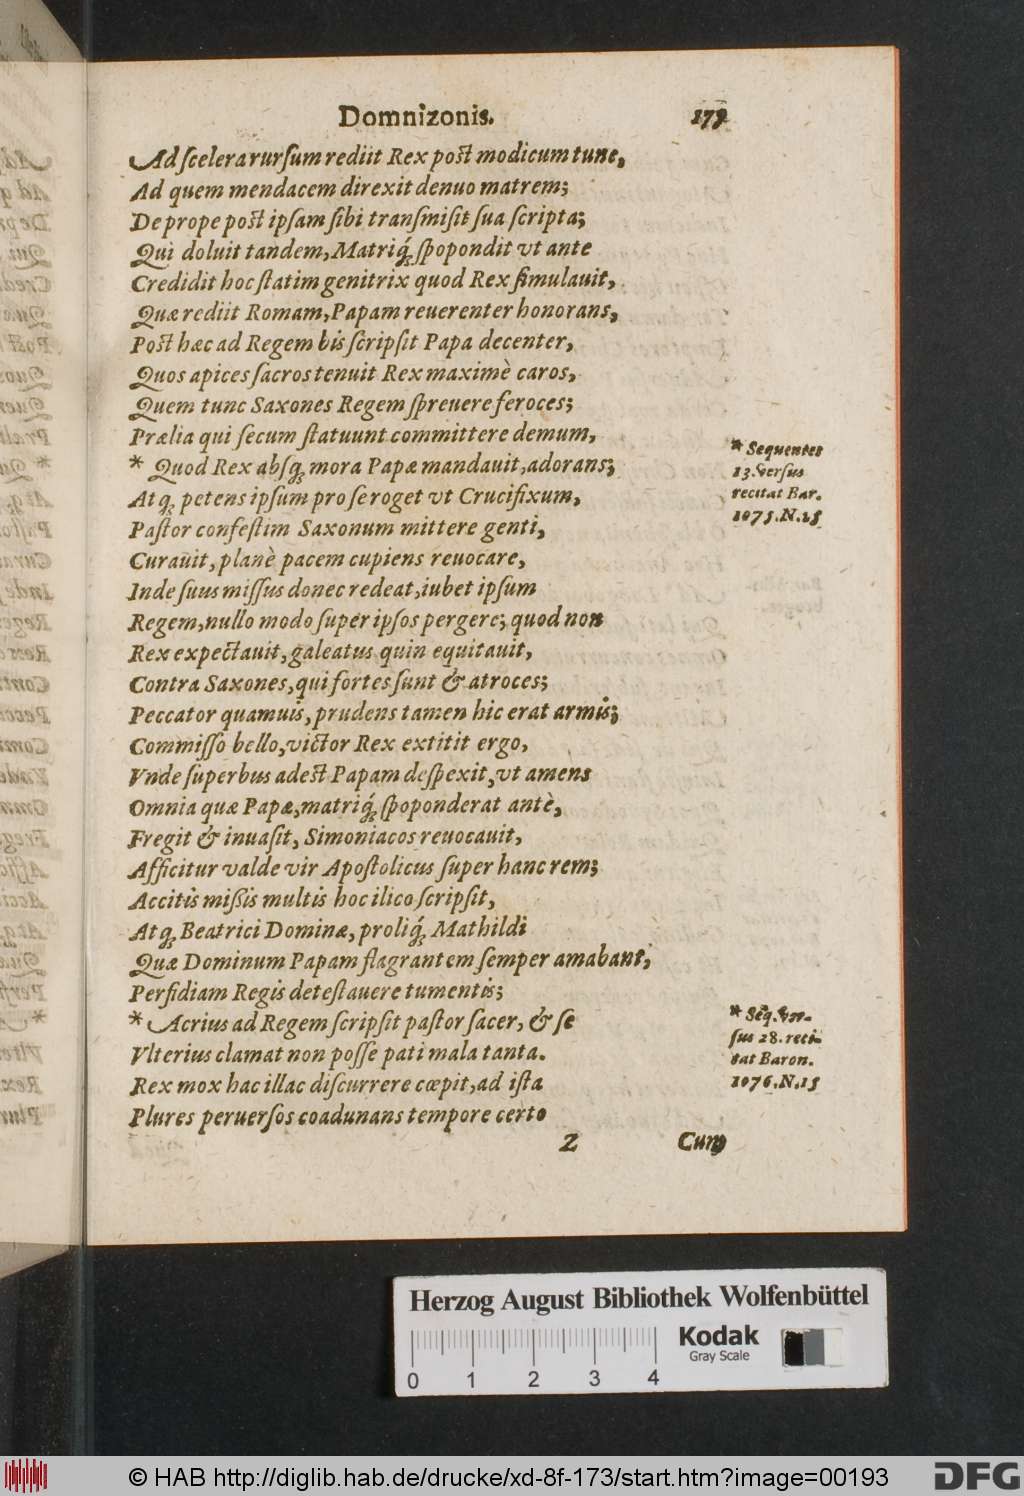 Domnizonis. 179
Ad scelera rursum rediit Rex post modicum tunc,
Ad quem mendacem direxit denuo matrem;
De prope post ipsam sibi transmisit sua scripta;
Qui doluit tandem, Matriq́; spopondit vt ante
Credidit hoc statim genitrix quod Rex simulauit,
Quæ rediit Romam, Papam reuerenter honorans,
Post hæc ad Regem bis scripsit Papa decenter,
Quos apices sacros tenuit Rex maximè caros,
Quem tunc Saxones Regem spreuere feroces;
Prælia qui secum statuunt committere demum,
* Quod Rex absq; mora Papæ mandauit, adorans;
Atq; petens ipsum pro se roget vt Crucifixum,
Pastor confestim Saxonum mittere genti,
Curauit, planè pacem cupiens reuocare,
Inde suus missus donec redeat, iubet ipsum
Regem, nullo modo super ipsos pergere; quod non
Rex expectauit, galeatus quin equitauit,
Contra Saxones, qui fortes sunt & atroces;
Peccator quamuis, prudens tamen hic erat armis;
Commisso bello, victor Rex extitit ergo,
Vnde superbus adest Papam despexit, vt amens
Omnia quæ Papæ, matriq́; spoponderat antè,
Fregit & inuasit, Simoniacos reuocauit,
Afficitur valde vir Apostolicus super hanc rem;
Accitis missis multis hoc ilico scripsit,
Atq; Beatrici Dominæ, proliq́; Mathildi
Quæ Dominum Papam flagrantem semper amabant,
Perfidiam Regis detestauere tumentis;
* Acrius ad Regem scripsit pastor sacer, & se
Vlterius clamat non posse pati mala tanta.
Rex mox hac illac discurrere cœpit, ad ista
Plures peruersos coadunans tempore certo
Z Cum
* Sequentes
13. versus
recitat Bar.
1075. N. 15
* Seq. ver-
sus 28. reci-
tat Baron.
1076. N. 15
Herzog August Bibliothek Wolfenbüttel
Kodak
Gray Scale
0 1 2 3 4
© HAB http://diglib.hab.de/drucke/xd-8f-173/start.htm?image=00193
DFG